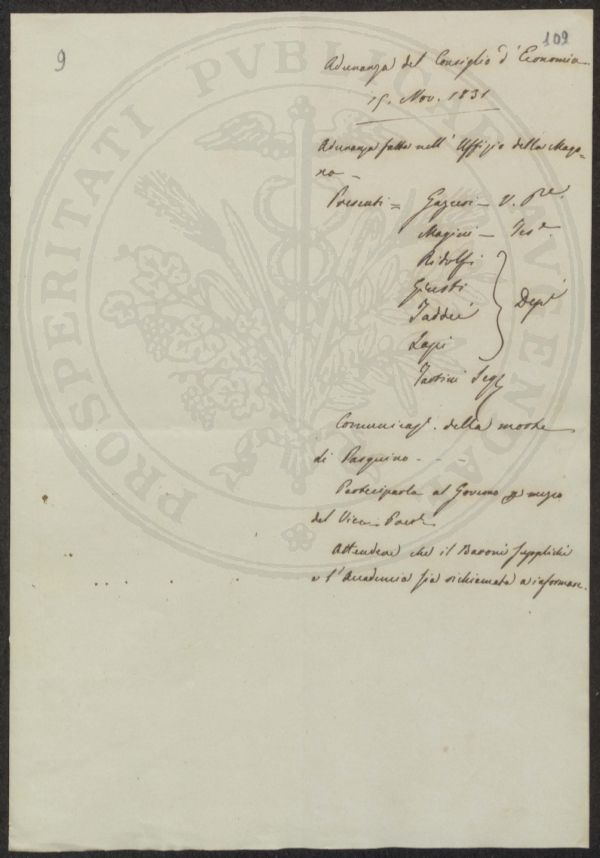 9
109
Adunanza del Consiglio d'Economia
15. Nov. 1831
Adunanza fatta nell' Uffizio della Mago=
na —
Presenti = Gazzeri — V. Pre.
Magini — Tes.e
Ridolfi
Giusti
Taddei
Lapi
Depi
Tartini Seg
Comunicaze. della morte
di Pasquino - - -
Parteciparla al Governo p mezzo
del Vice Preste
Attendere che il Baroni supplichi
e l'Accademia sia richiamata a informare.
PROSPERITATI PVBLICAE AVGENDAE